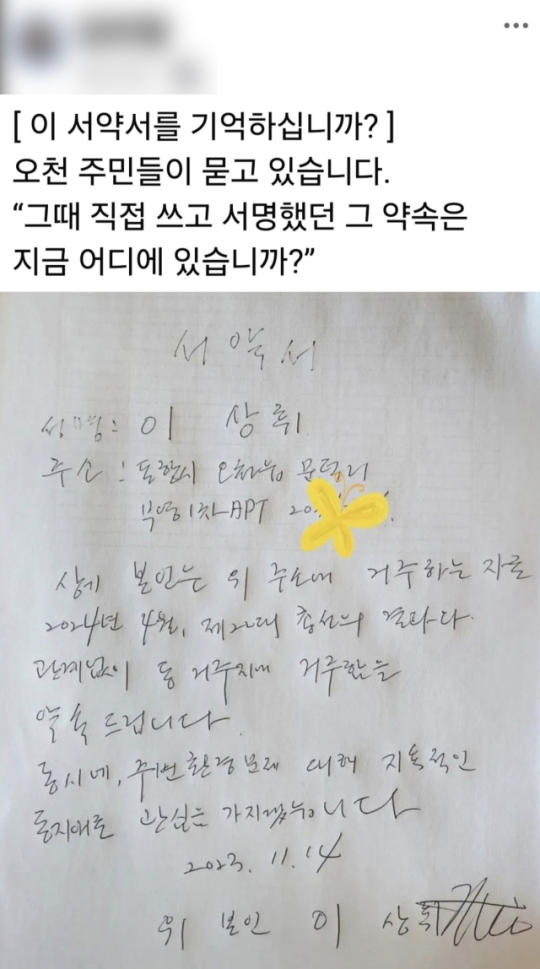 [ 이 서약서를 기억하십니까? ]
오천 주민들이 묻고 있습니다.
“그때 직접 쓰고 서명했던 그 약속은
지금 어디에 있습니까?”
서 약 서
성명: 이 상휘
주소 : 포항시 오천읍 문덕리
부영1차APT 20
상기 본인은 위 주소에 거주하는 자로
2024년 4월, 제22대 총선의 결과와
관계없이 동 거주지에 거주함을
약속 드립니다.
동시에, 주변환경문제에 대해 지속적인
관심을 가지겠습니다
2023. 11. 14
위 본인 이 상휘